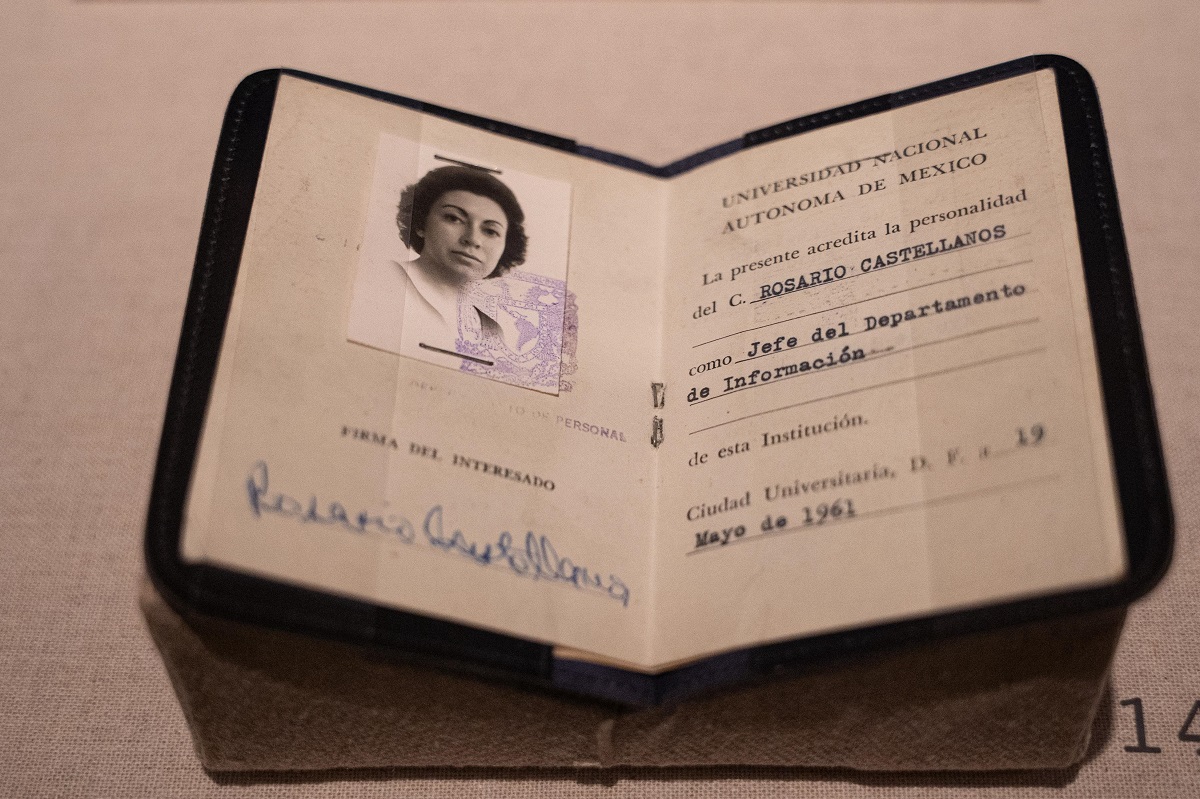 PERSONAL
FIRMA DEL INTERESADO
Rosario Castellanos
UNIVERSIDAD NACIONAL
AUTONOMA DE MEXICO
La presente acredita la personalidad
del C. ROSARIO CASTELLANOS
como Jefe del Departamento
de Información
de esta Institución.
Ciudad Universitaria, D. F. a 19
Mayo de 1961
14